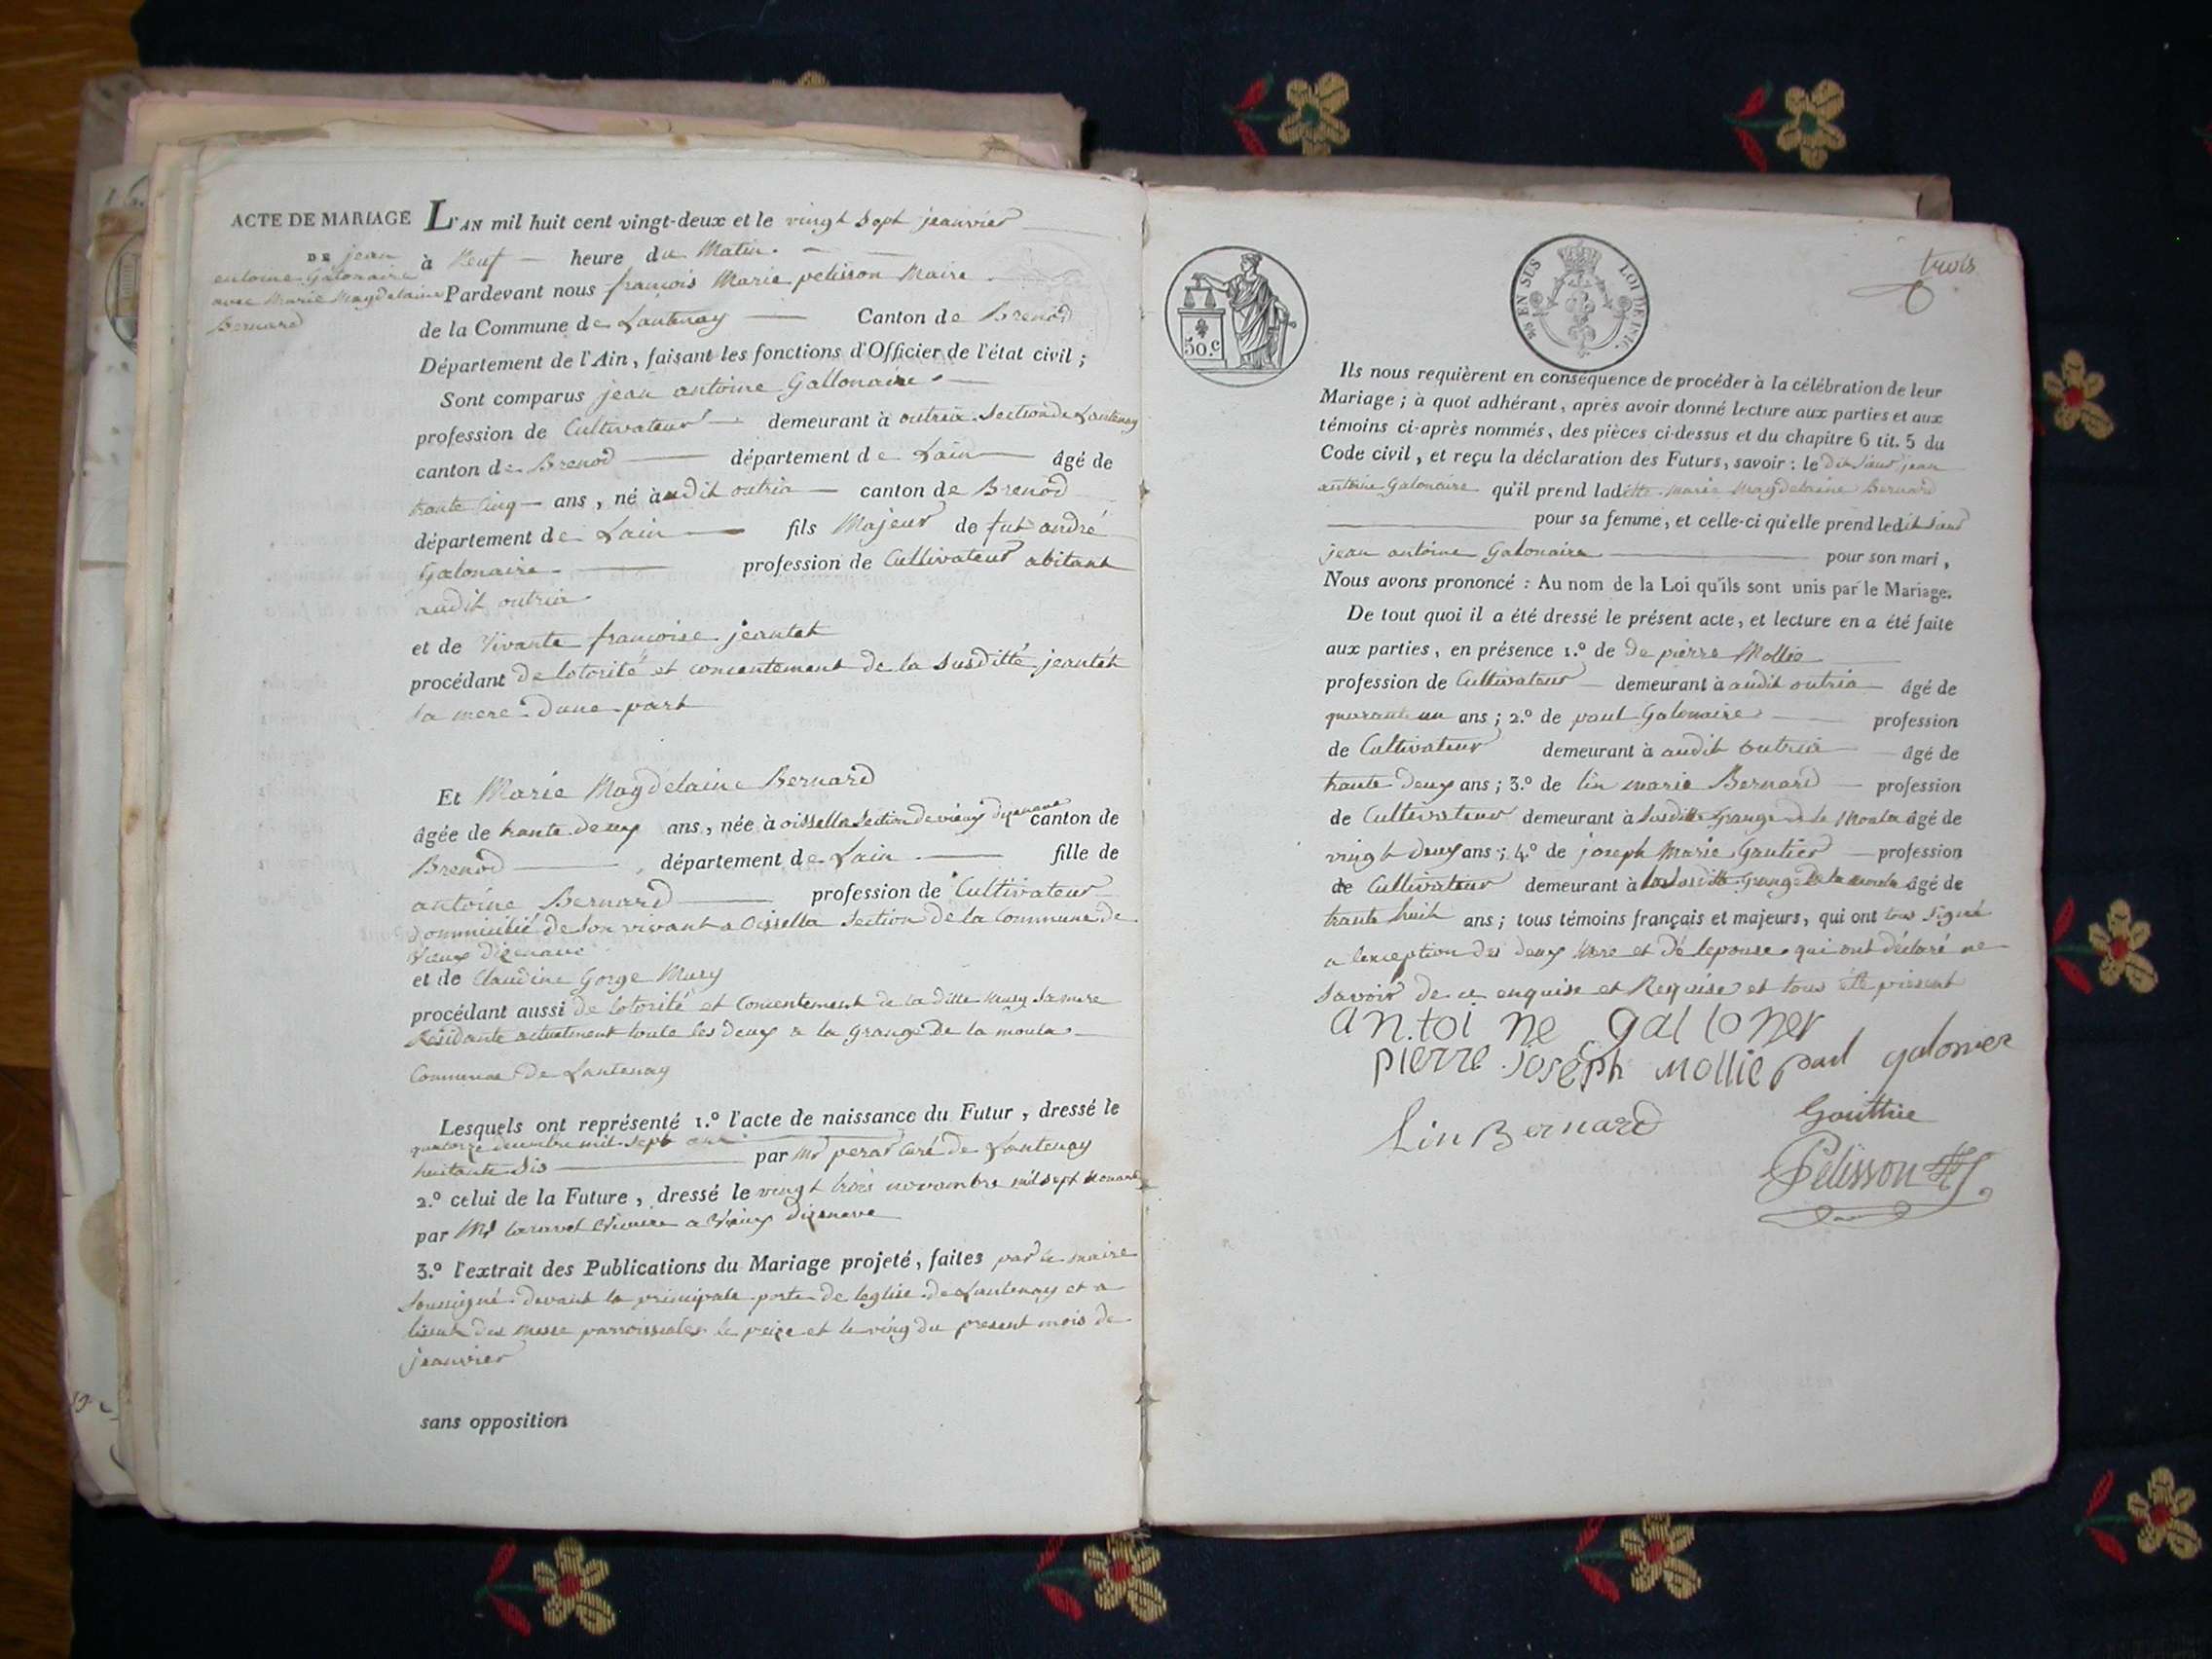 ACTE DE MARIAGE
DE jean
entoine Galonaire
avec Marie Magdelaine
Bernard
L'AN mil huit cent vingt-deux et le vingt sept jeanvier
à Neuf heure du Matin.
Pardevant nous françois Marie pelisson Maire
de la Commune de Lantenay Canton de Brenod
Département de l'Ain, faisant les fonctions d'Officier de l'état civil ;
Sont comparus jean antoine Gallonaire
profession de Cultivateur demeurant à outria Section de Lantenay
canton de Brenod département de Lain âgé de
trante Cinq ans, né à audit outria canton de Brenod
département de Lain fils Majeur de fut andré
Galonaire profession de Cultivateur abitant
audit outria
et de vivante françoise jeantet
procédant de lotorité et concentement de la susditte jeantet
sa mere dune part
Et Marie Magdelaine Bernard
âgée de trante deux ans, née à oissella Section de vieux dizenave canton de
Brenod département de Lain fille de
antoine Bernard profession de Cultivateur
dommicilié de Son vivant a Oissella Section de la Commune de
Vieux dizenave
et de Claudine Gorge Mury
procédant aussi de lotorité et Concentement de la ditte Mury Sa mere
Résidante actuelment toute les deux a la grange de la moula
Commune de Lantenay
Lesquels ont représenté 1.º l'acte de naissance du Futur, dressé le
quatorze decembre mil sept cent
huitante Sis par Mr perat Curé de Lantenay
2.º celui de la Future, dressé le vingt trois novembre mil sept nonante
par Mr Vicaire a Vieux dizenave
3.º l'extrait des Publications du Mariage projeté, faites par le maire
Soussigné devant la principale porte de leglise de Lantenay et a
lissue des messe parroissiales le treize et le ving du present mois de
jeanvier
sans opposition
50.c
EN SUS
LOI DE 1816.
trois
Ils nous requièrent en conséquence de procéder à la célébration de leur
Mariage ; à quoi adhérant, après avoir donné lecture aux parties et aux
témoins ci-après nommés, des pièces ci-dessus et du chapitre 6 tit. 5 du
Code civil, et reçu la déclaration des Futurs, savoir : le dit Sieur jean
antoine Galonaire qu'il prend laditte marie Magdelaine Bernard
pour sa femme, et celle-ci qu'elle prend ledit Sieur
jean antoine Galonaire pour son mari,
Nous avons prononcé : Au nom de la Loi qu'ils sont unis par le Mariage.
De tout quoi il a été dressé le présent acte, et lecture en a été faite
aux parties, en présence 1.º de de pierre Mollie
profession de Cultivateur demeurant à audit outria âgé de
quarante un ans ; 2.º de paul Galonaire profession
de Cultivateur demeurant à audit outria âgé de
trante deux ans ; 3.º de lin marie Bernard profession
de Cultivateur demeurant à Susditte Grange de la Moula âgé de
vingt deux ans ; 4.º de joseph Marie Gautier profession
de Cultivateur demeurant à la Susditte Grange de la moula âgé de
trante huit ans ; tous témoins français et majeurs, qui ont tous Signé
a lexception des deux Mere et de lepouse qui ont déclaré ne
Savoir de ce enquise et Requise et tous été présent
an.toi ne galloner
pierre joseph mollie paul galonier
Lin Bernard Gouttire
Pelisson